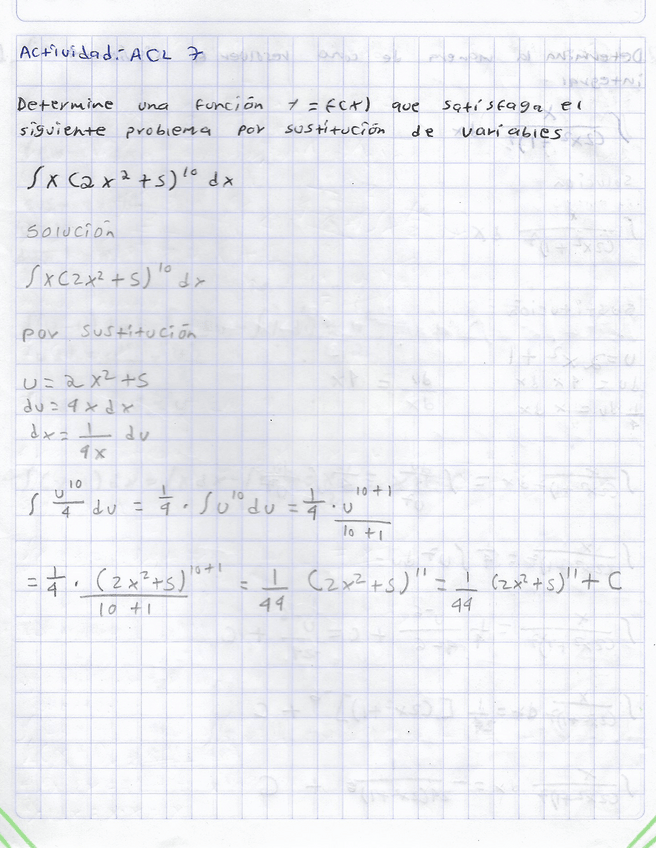 Actividad: ACL 7
Determine una función y = f(x) que satisfaga el
siguiente problema por sustitución de variables
∫ x (2x² + 5)¹⁰ dx
Solución
∫ x (2x² + 5)¹⁰ dx
por sustitución
u = 2x² + 5
du = 4x dx
dx = 1/4x du
∫ u¹⁰/4 du = 1/4 · ∫ u¹⁰ du = 1/4 · u¹⁰⁺¹/10+1
= 1/4 · (2x²+5)¹⁰⁺¹/10+1 = 1/44 (2x²+5)¹¹ = 1/44 (2x²+5)¹¹ + C